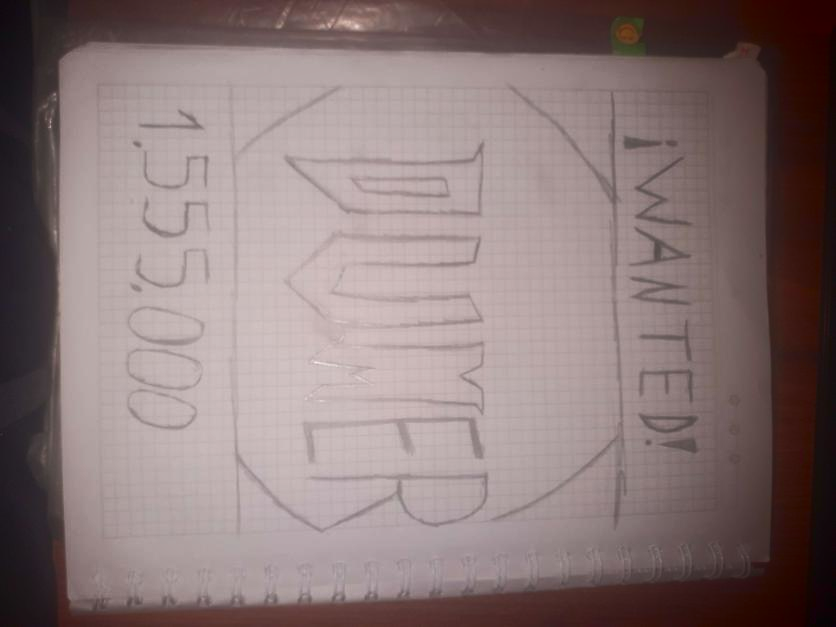 ¡WANTED!
DUXER
1.555.000